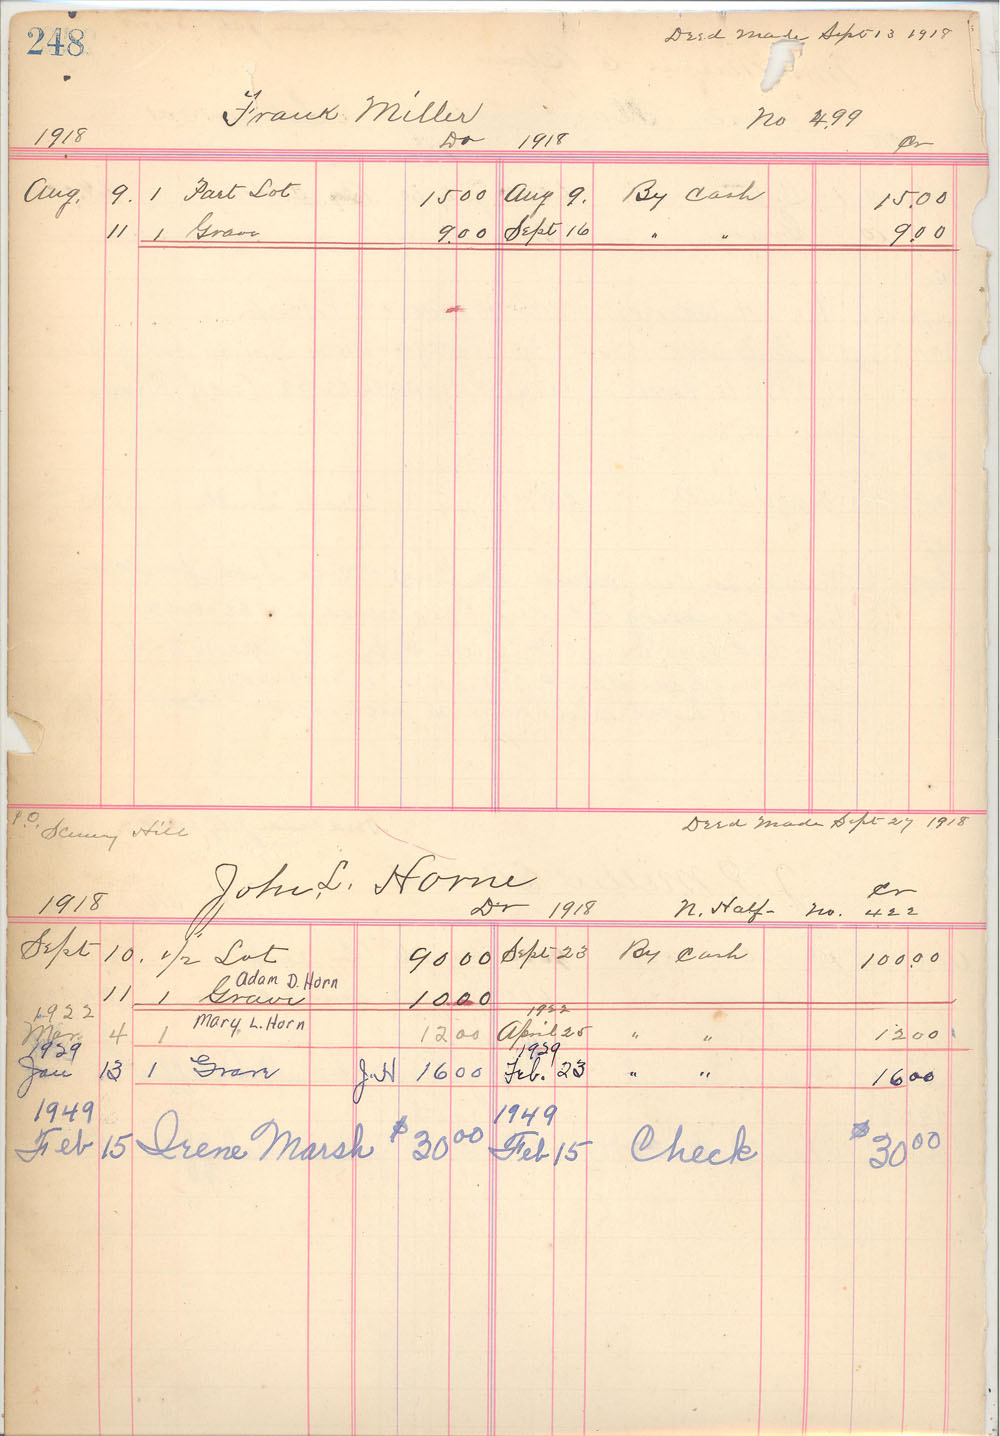 248
Deed Made Sept 13 1918
Frank Miller No 499
1918 Dr 1918 Cr
Aug. 9. 1 Part Lot 15 00 Aug 9. By Cash 15.00
11 1 Grave 9.00 Sept 16 " " 9.00
P.O. Scenery Hill
Deed Made Sept 27 1918
John L. Horne
1918 Dr 1918 N. Half- No. 422 Cr
Sept 10. 1/2 Lot 90 00 Sept 23 By Cash 100.00
Adam D. Horn
11 1 Grave 10.00
1922 1922
Mar. 4 1 Mary L. Horn 12 00 April 25 " " 12 00
1929 1929
Jan 13 1 Grave J.H 16 00 Feb. 23 " " 16 00
1949 1949
Feb 15 Irene Marsh $30 00 Feb 15 Check $30 00